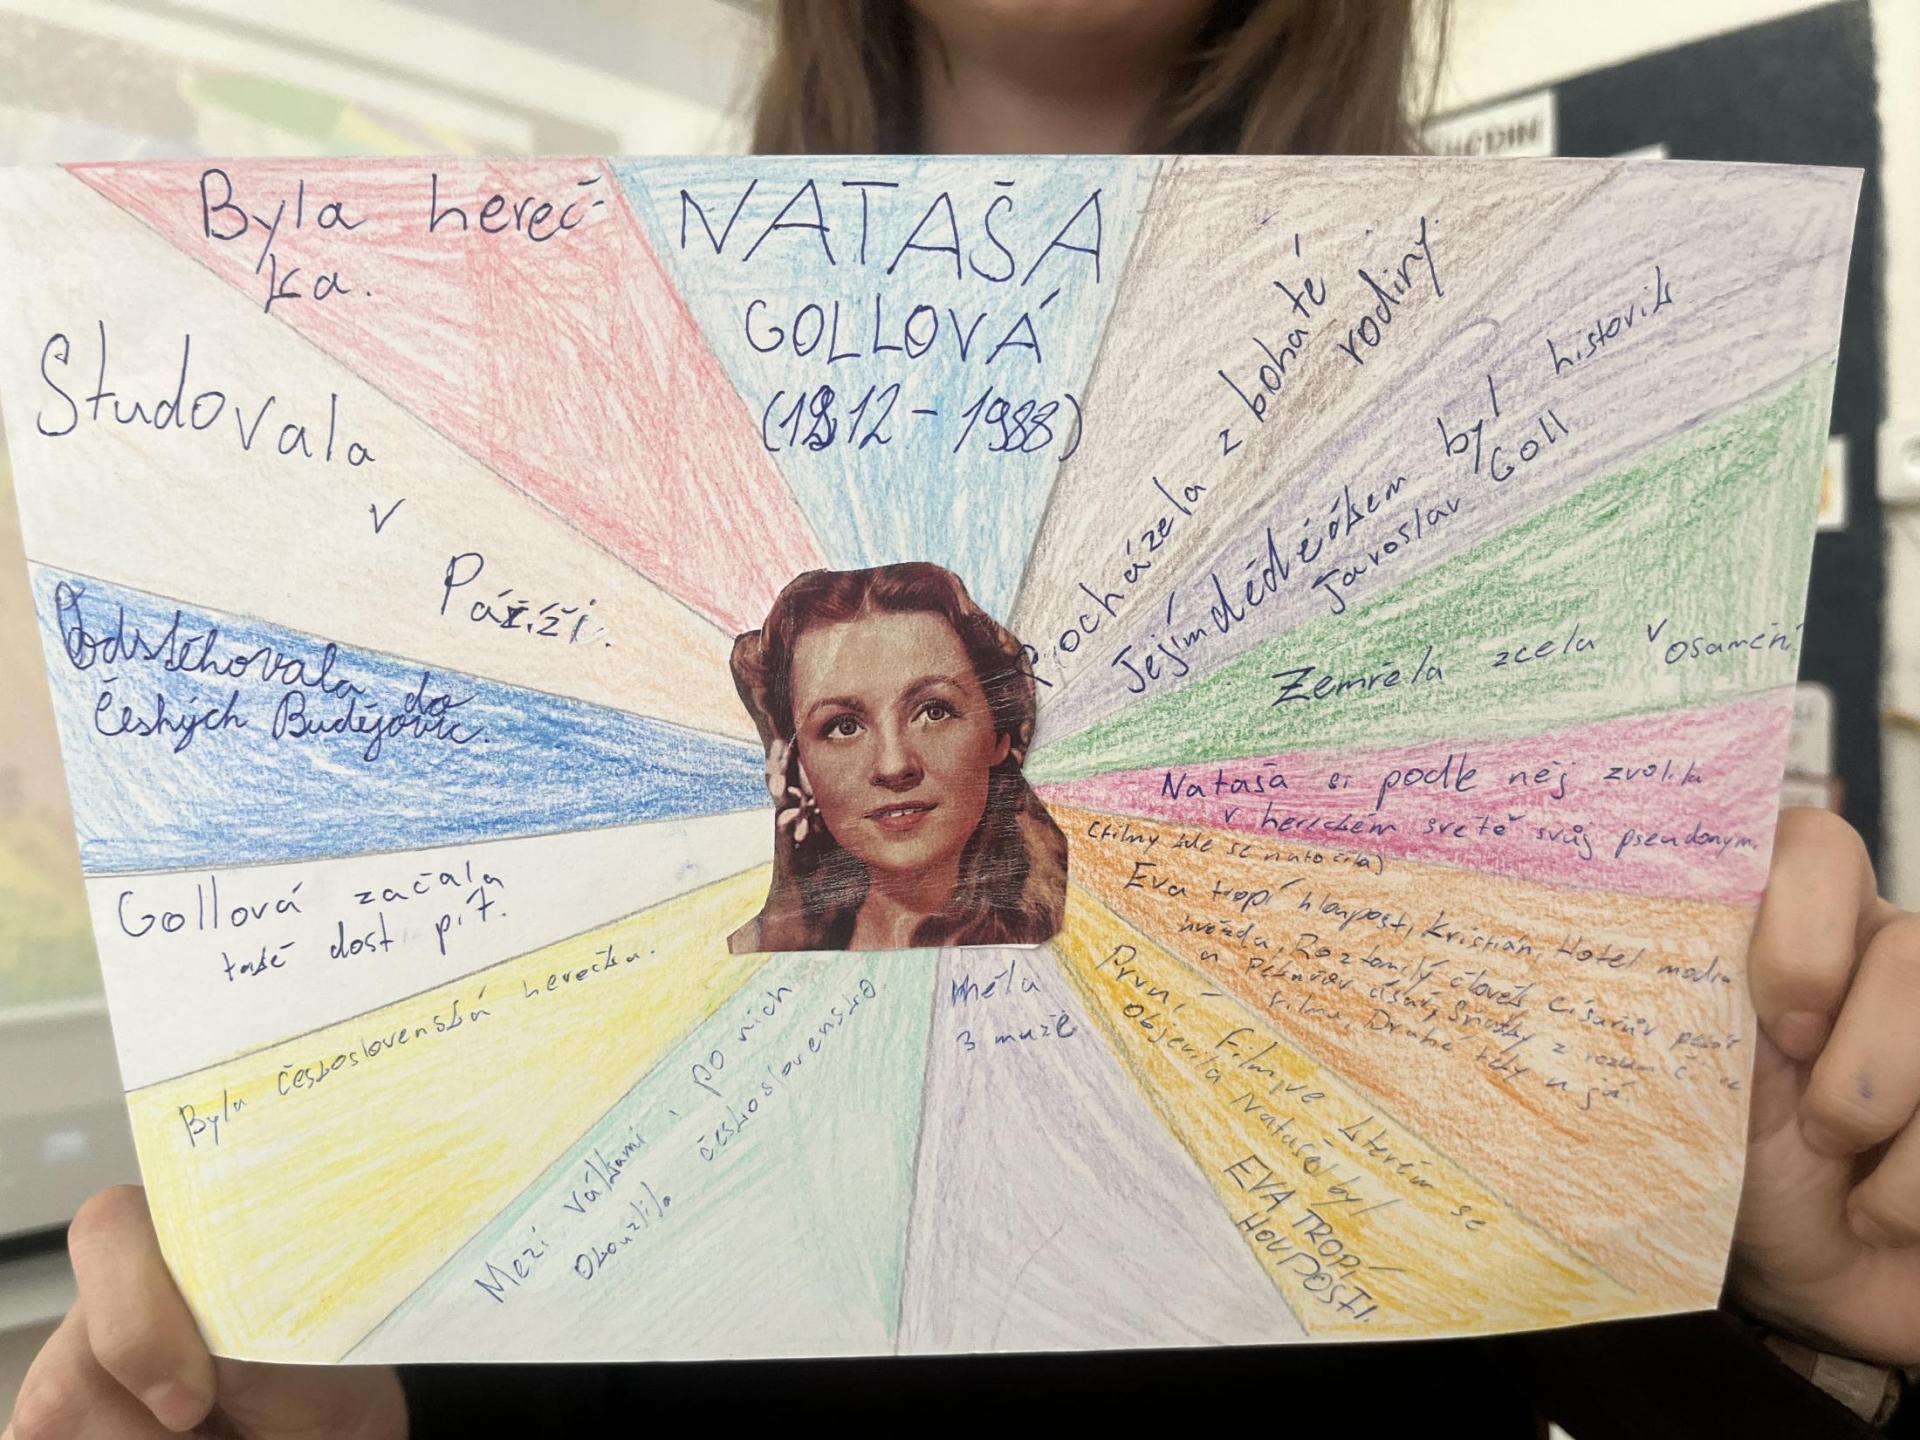 NATAŠA
GOLLOVÁ
(1912 - 1988)
Pocházela z bohaté
rodiny.
Jejím dědečkem byl historik
Jaroslav Goll
Zemřela zcela v osamění
Nataša si podle něj zvolila
v hereckém světě svůj pseudonym.
(filmy kde se natočila)
Eva tropí hlouposti, Kristián, Hotel modrá
hvězda, Roztomilý člověk Císařův pekař
a Pekařův císař, z rozumem
filmu, Drahé tety a já.
První film, ve kterém se
objevila Nataša byl
EVA TROPÍ
HOUPOSTI.
Měla
3 muže
Mezi válkami i po nich
okouzlila československo
Byla československá herečka.
Gollová začala
také dost pít.
Odstěhovala do
Českých Budějovic.
Studovala
v
Páříži.
Byla hereč-
ka.
HEDIN